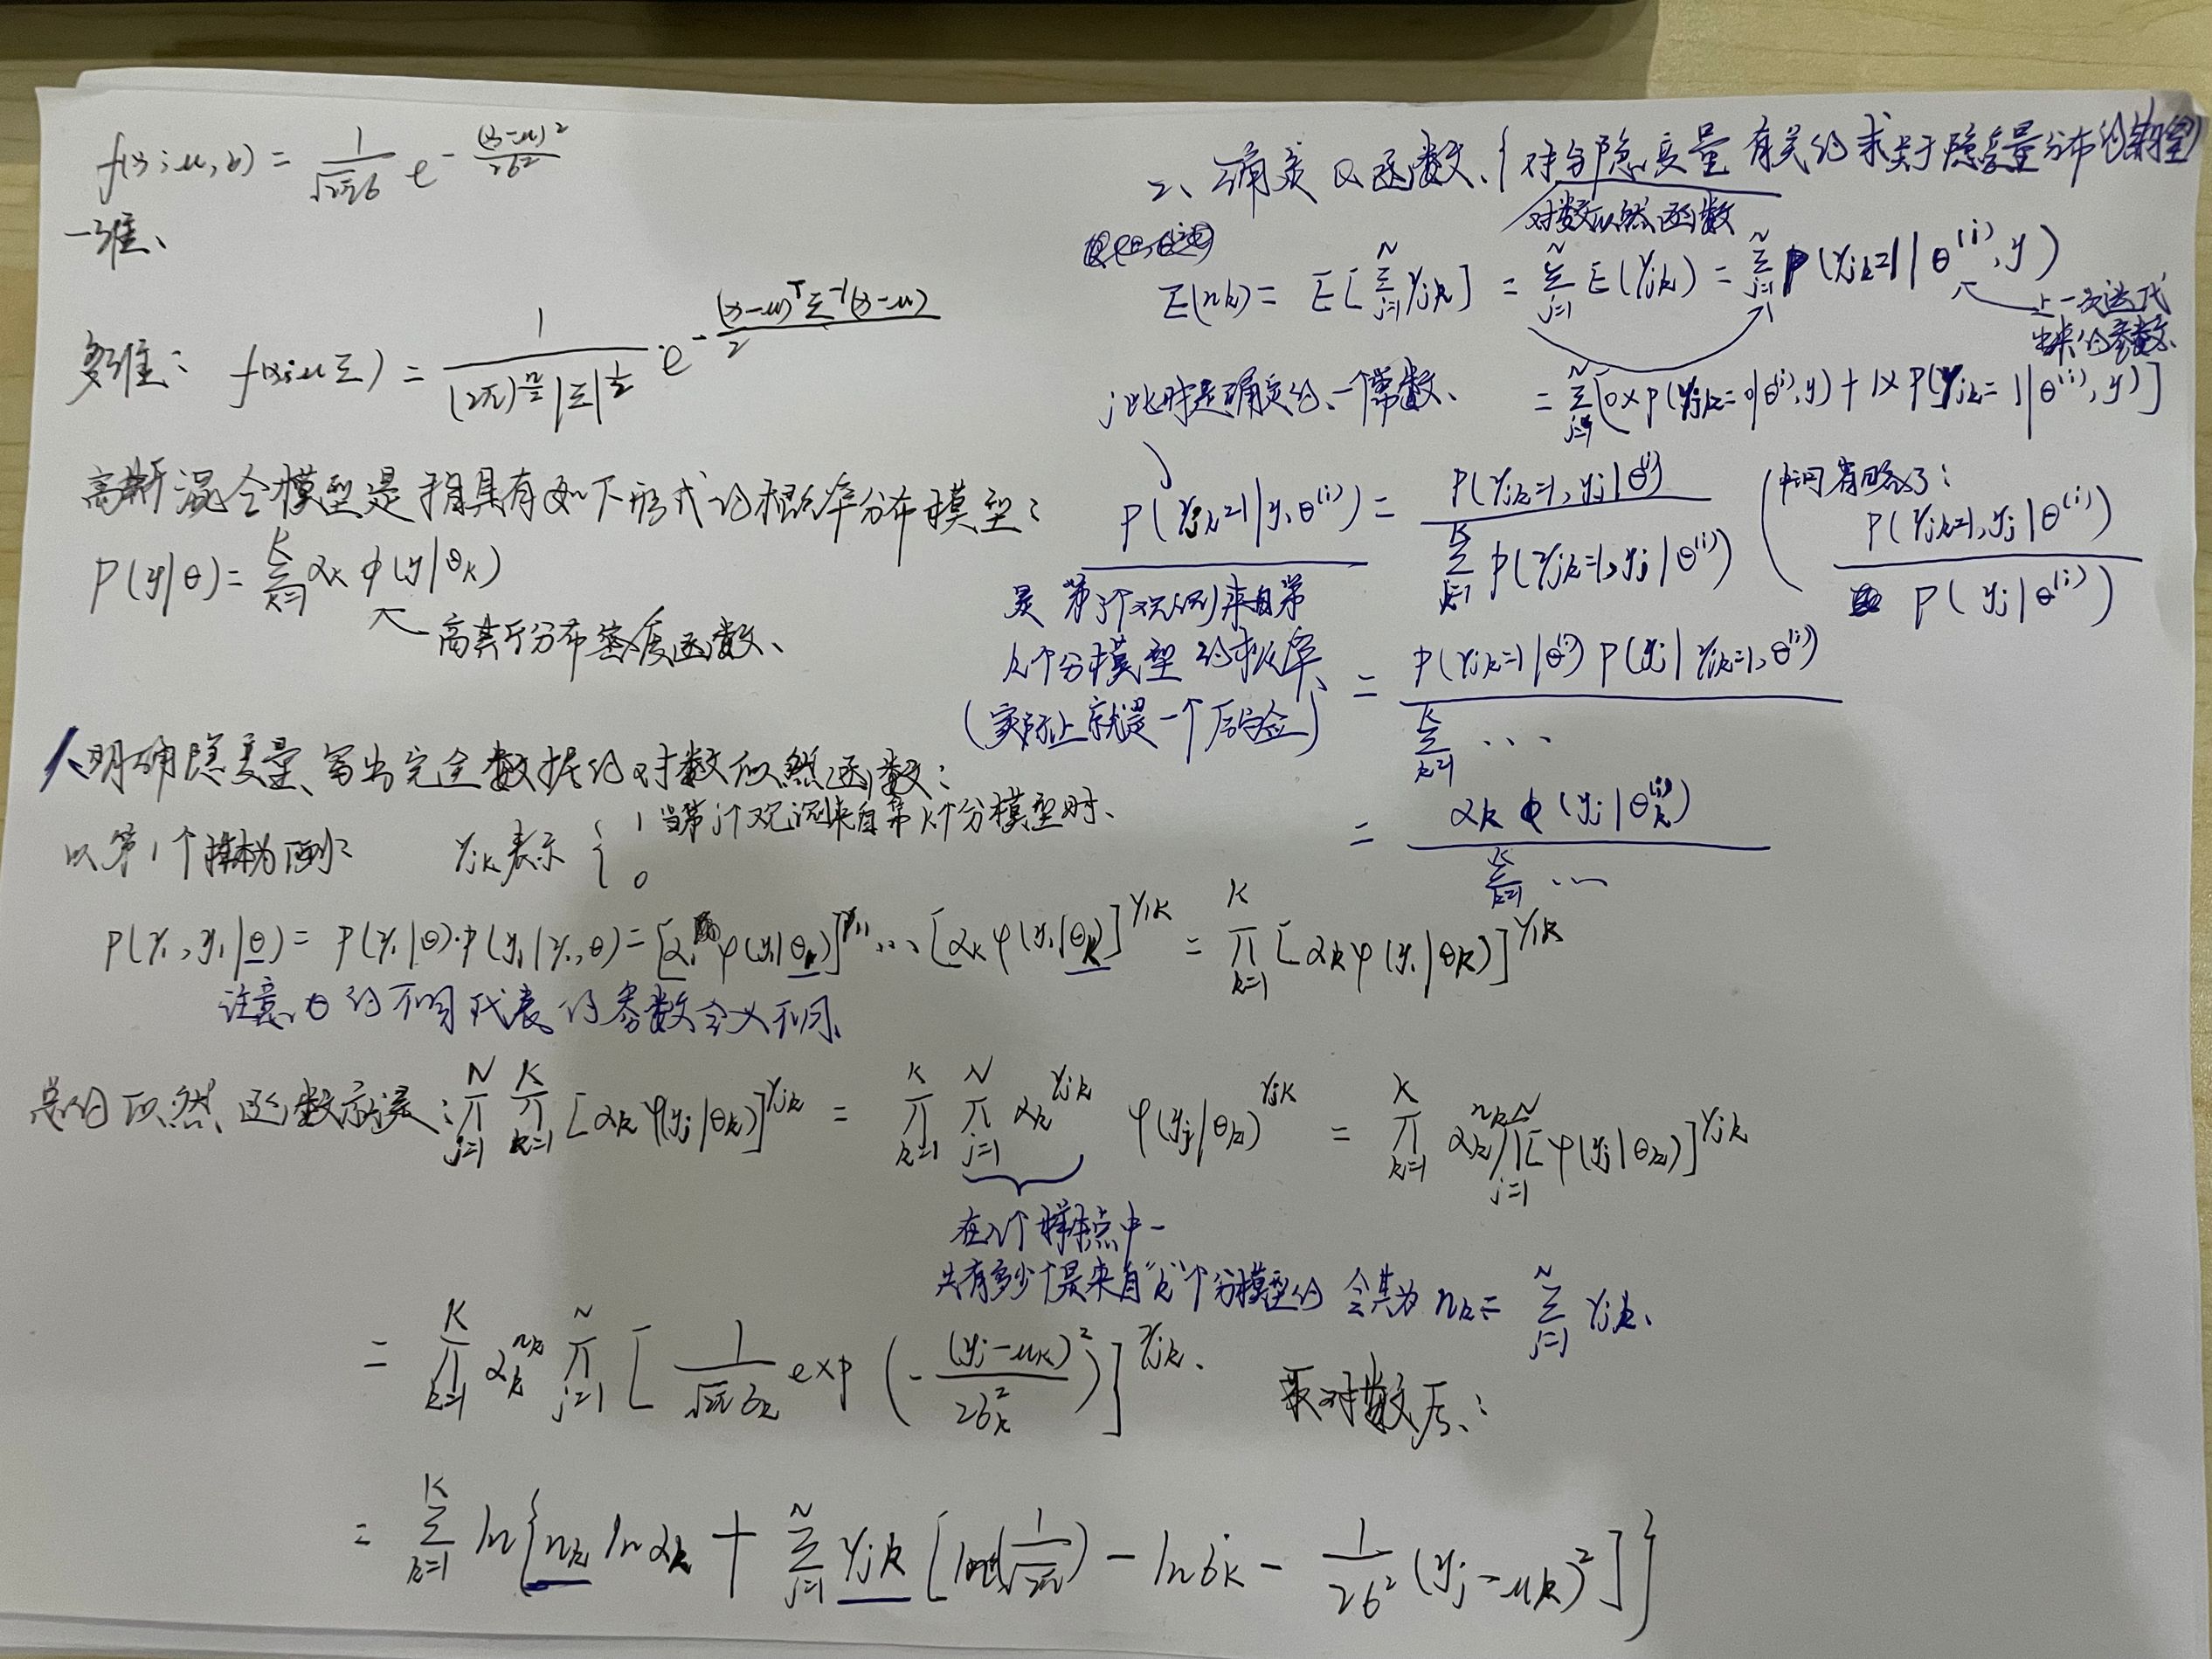 f(x;μ,σ) = 1/(√2π σ) e^-(x-μ)²/2σ²
一维、
多维: f(x;μ Σ) = 1/((2π)^(n/2) |Σ|^(1/2)) e^-((x-μ)^T Σ^-1 (x-μ))/2
高斯混合模型是指具有如下形式的概率分布模型:
P(y|θ) = Σ_{k=1}^K αk φ(y|θk)
高斯分布密度函数、
1、明确隐变量、写出完全数据的对数似然函数:
以第1个样本为例: γjk表示 { 1 当第j个观测来自第k个分模型时、
0
P(γ1, y1|θ) = P(γ1|θ)·P(y1|γ1,θ) = [α1 φ(y1|θ1)]^γ11 ... [αK φ(y1|θK)]^γ1K = Π_{k=1}^K [αk φ(y1|θk)]^γ1k
注意、θ的不同代表的参数含义不同、
总的似然函数就是: Π_{j=1}^N Π_{k=1}^K [αk φ(yj|θk)]^γjk = Π_{k=1}^K Π_{j=1}^N αk^γjk φ(yj|θk)^γjk = Π_{k=1}^K αk^nk Π_{j=1}^N [φ(yj|θk)]^γjk
在N个样本点中一
共有多少个是来自"k"个分模型的 令其为 nk = Σ_{j=1}^N γjk、
= Π_{k=1}^K αk^nk Π_{j=1}^N [1/(√2π σk) exp(-(yj-μk)²/2σk²)]^γjk、 取对数后、:
= Σ_{k=1}^K ln{nk ln αk + Σ_{j=1}^N γjk [ln(1/√2π) - ln σk - 1/2σ² (yj-μk)²]}
2、确定Q函数、(对与隐变量有关的求关于隐变量分布的期望)
对数似然函数
E(nk) = E[Σ_{j=1}^N γjk] = Σ_{j=1}^N E(γjk) = Σ_{j=1}^N P(γjk=1|θ^(i), y)
上一次迭代
出来的参数、
j此时是确定的、一个常数、 = Σ_{j=1}^N [0×P(γjk=0|θ^(i),y) + 1×P(γjk=1|θ^(i),y)]
P(γjk=1|y,θ^(i)) = P(γjk=1,yj|θ^(i)) / Σ_{k=1}^K P(γjk=1,yj|θ^(i)) (中间省略了: P(γjk=1,yj|θ^(i)) / P(yj|θ^(i))
是第j个观测来自第
k个分模型的概率、
(实际上就是一个后验)
= P(γjk=1|θ^(i)) P(yj|γjk=1,θ^(i)) / Σ_{k=1}^K ...
= αk φ(yj|θk^(i)) / Σ_{k=1}^K ...